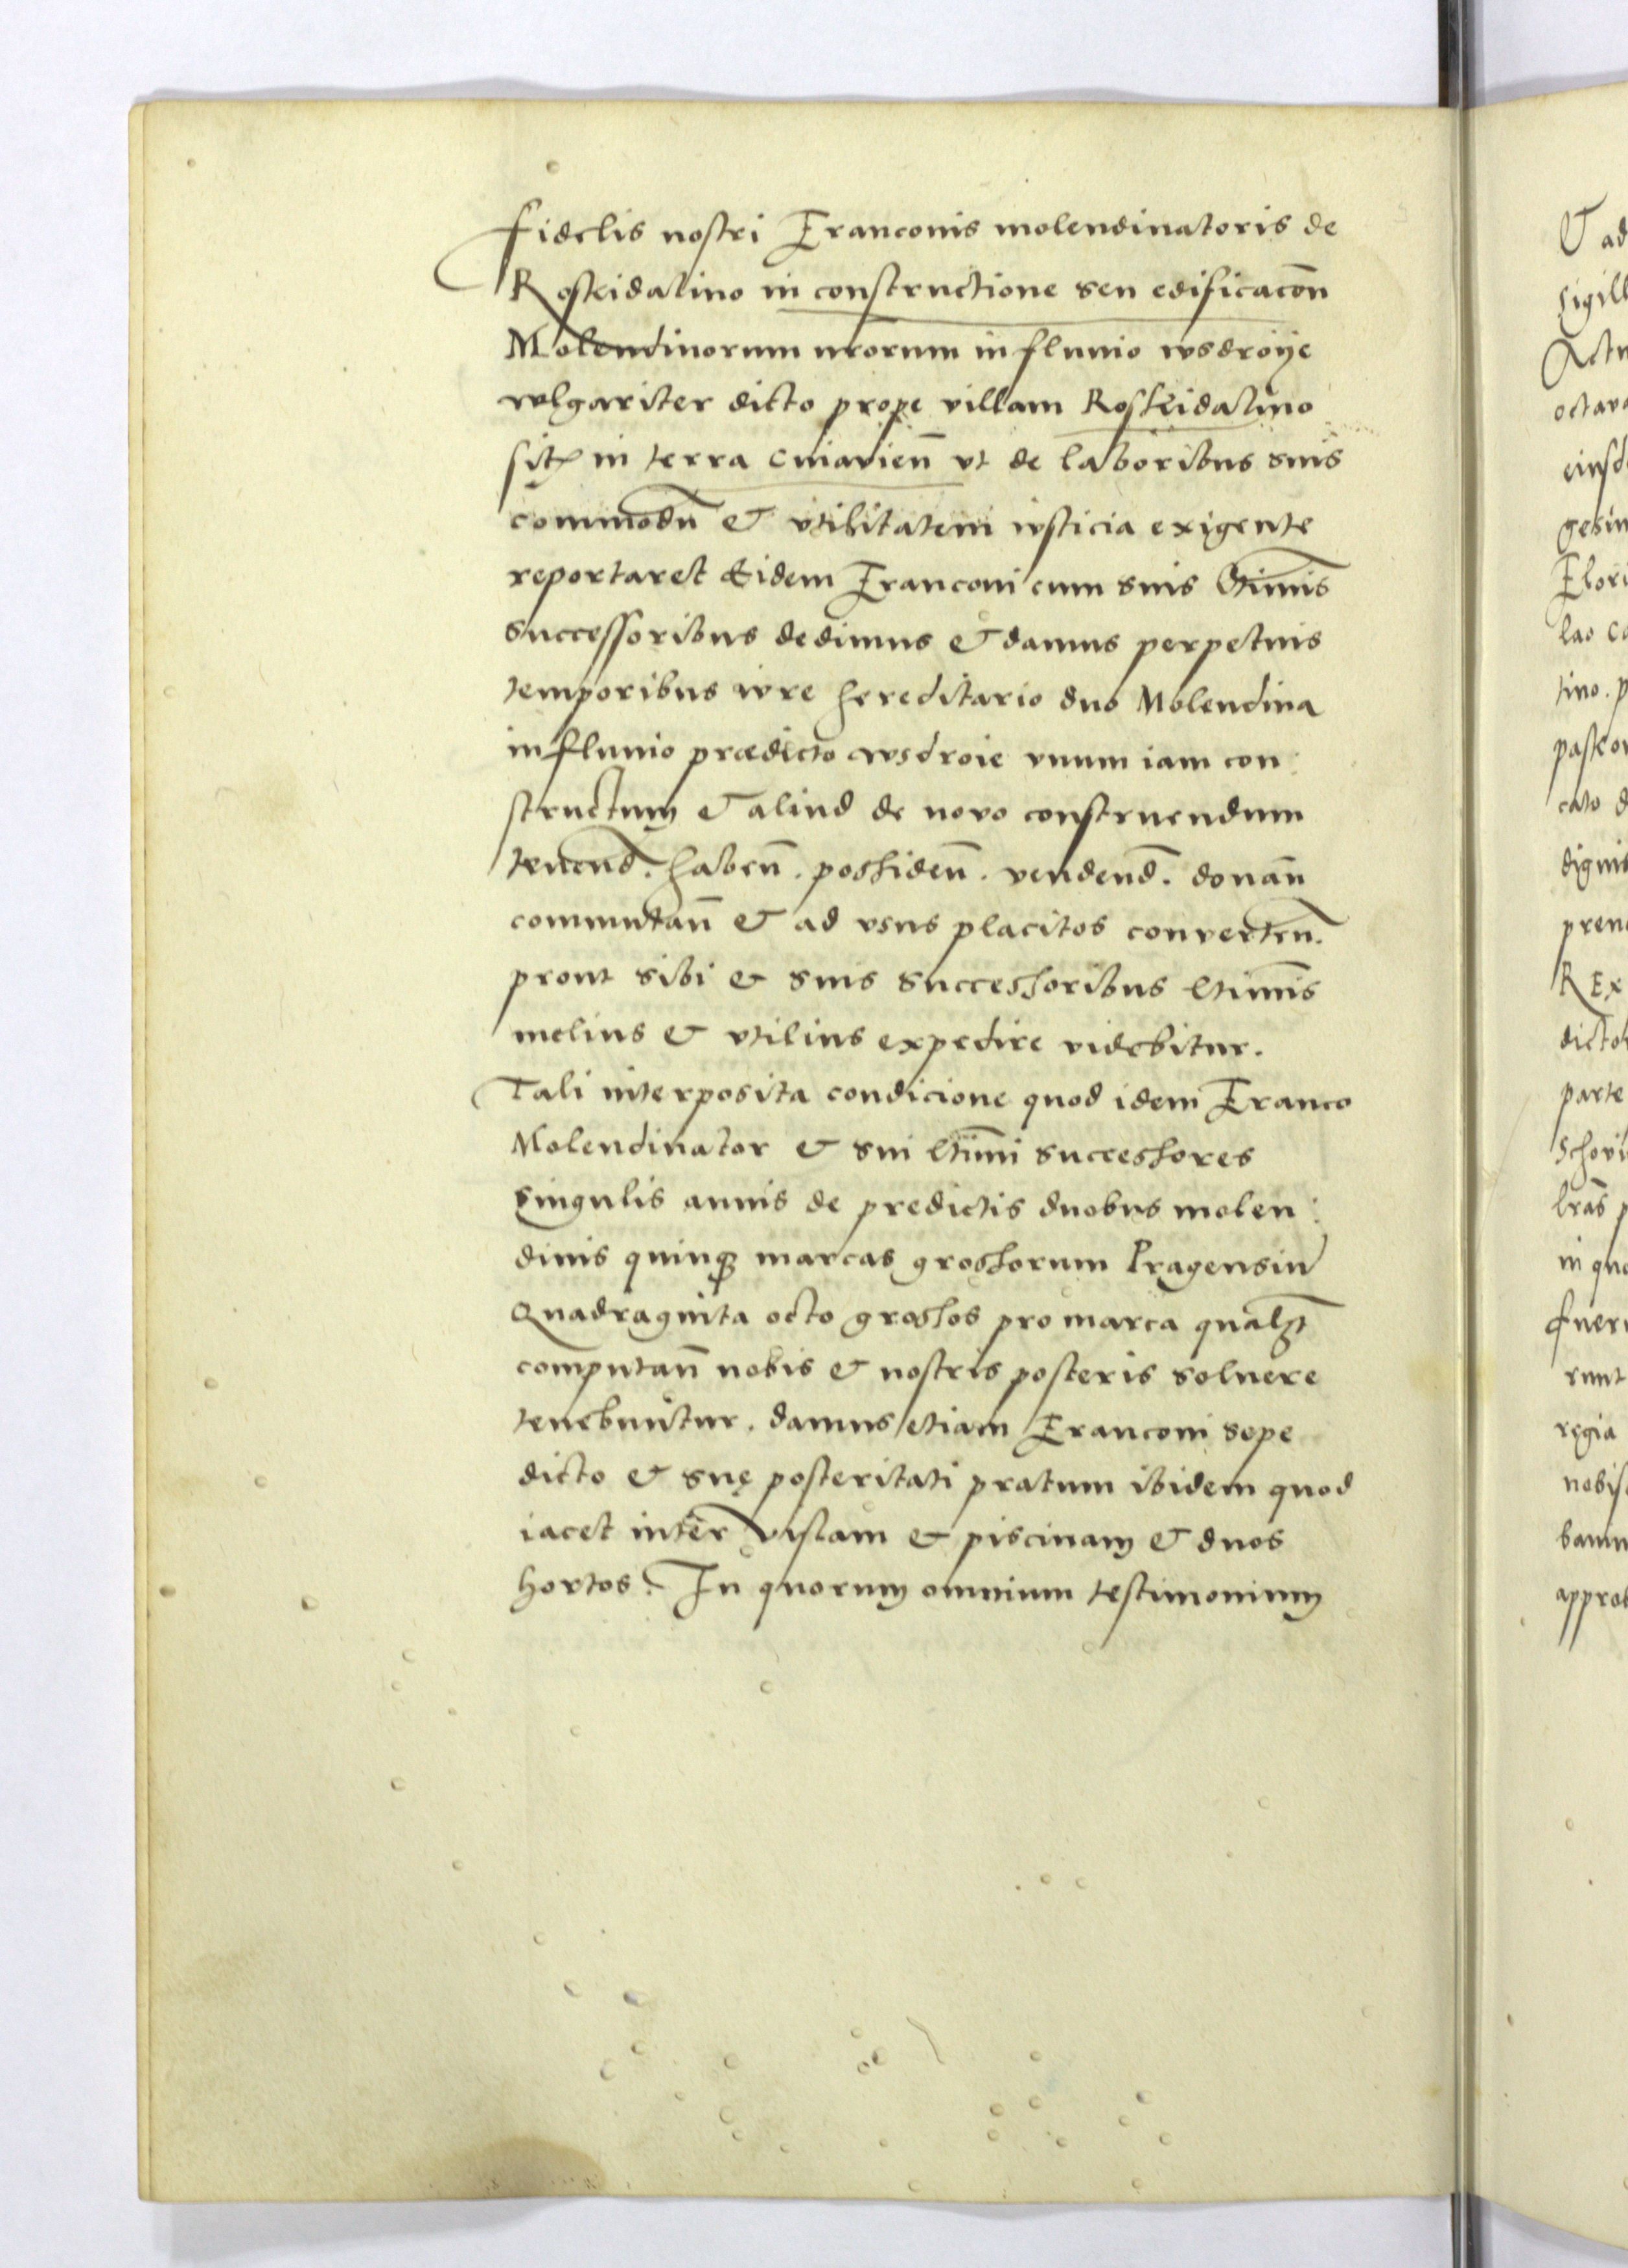 fidelis nostri Franconis molendinatoris de
Rostkidalino in constructione seu edificacōn
Molendinorum nrorum in fluuio wsdroÿe
wlgariter dicto prope villam Rostkidalino
sit in terra Cuiavien̄ vt de laboribus suis
commodū & vtilitatem iusticia exigente
reportaret Eidem Franconi cum suis ltimis
successoribus dedimus & damus perpetuis
temporibus iure hereditario duo Molendina
in fluuio prædicto wsdroie vnum iam con:
structum & aliud de novo construendum
tenend. haben̄. possiden̄. vendend. donan̄
commutan̄ & ad vsus placitos converten̄.
prout sibi & suis successoribus ltimis
melius & vtilius expedire videbitur.
Tali interposita condicione quod idem Franco
Molendinator & sui ltimi successores
singulis annis de predictis duobus molen:
dinis quinqꝫ marcas grossorum Pragensiū
Quadraginta octo grossos pro marca qualꝫt
computan̄ nobis & nostris posteris soluere
tenebuntur. damus etiam Franconi sepe
dicto & suę posteritati pratum ibidem quod
iacet inter Vislam & piscinam & duos
hortos. In quorum omnium testimonium
& ad
sigill
Actu
octava
eiusd
gesim
Flori
lao ca
tino. p
pastor
cato d
dignis
pren
REx
dictor
parte
Schovi
lras p
in quo
fueri
runt
regia
nobis
bamu
approb